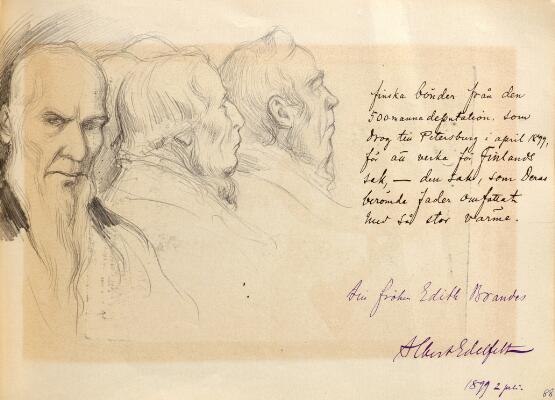 finska bönder från den
500mannadeputation, som
drog till Petersburg i april 1899,
för att verka för Finlands
sak, — den sak, som Deras
berömde fader omfattat
med så stor värme.
fröken Edith Brandes
Albert Edelfelt
1899 2
88